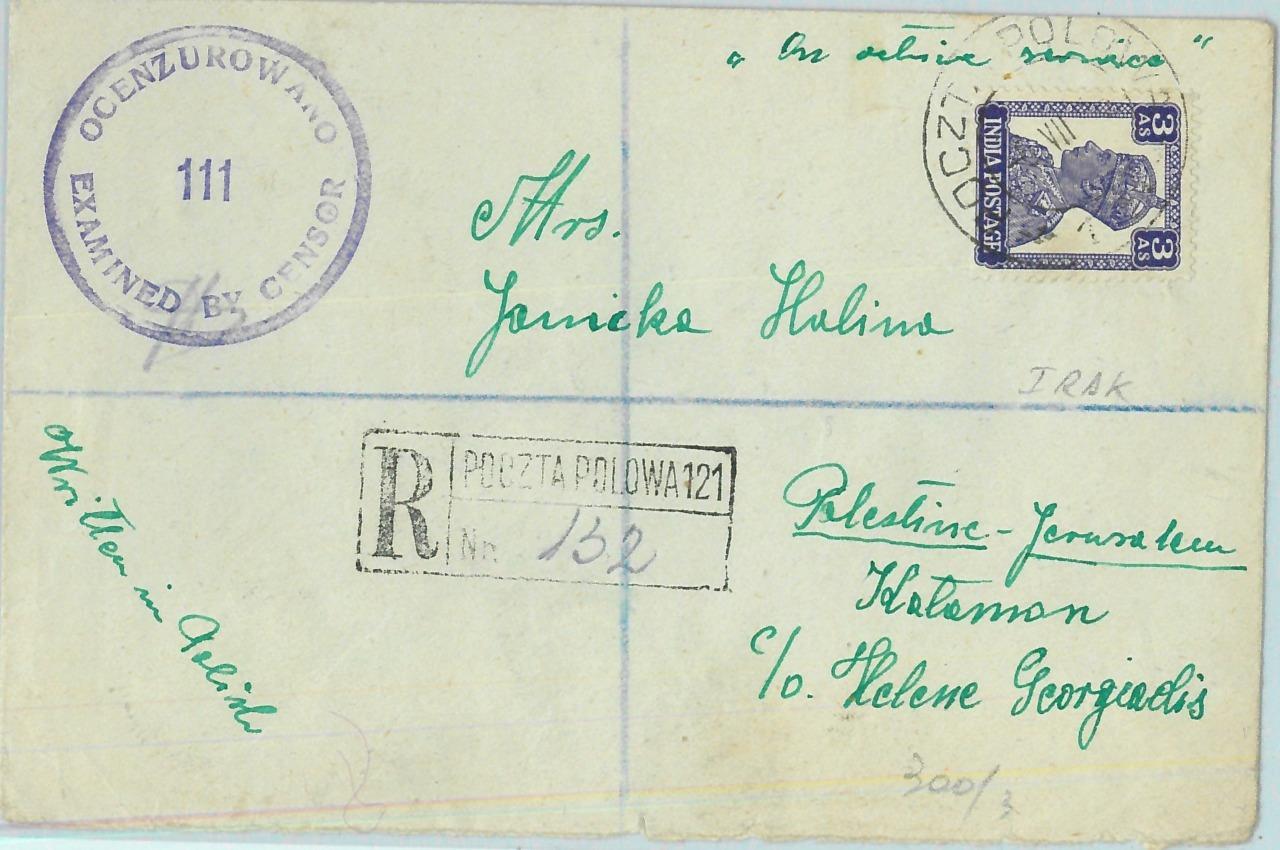 OCENZUROWANO
111
EXAMINED BY CENSOR
"On active service"
POCZTA POLOWA
VII
3 AS
3 AS
INDIA POSTAGE
Mrs.
Janicka Halina
IRAK
R
POCZTA POLOWA 121
Nr. 132
Palestine - Jerusalem
Katamon
c/o. Helene Georgiadis
Written in Polish
300/3